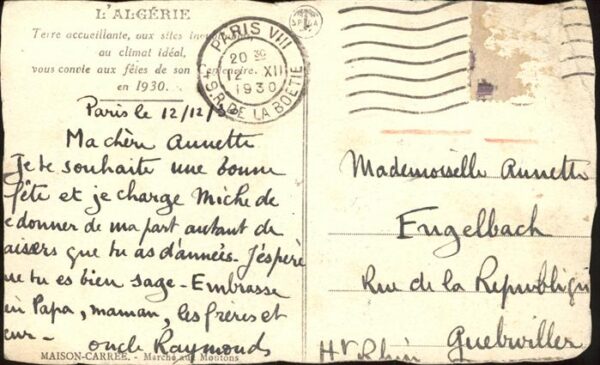 L'ALGÉRIE
Terre accueillante, aux sites
au climat idéal,
vous convie aux fêtes de son Centenaire.
en 1930.
PARIS VIII
20 30
12 XII
1930
R. DE LA BOETIE
Paris le 12/12/
Ma chère Annette
Je te souhaite une bonne
fête et je charge Miche de
e donner de ma part autant de
aisers que tu as d'années. J'espère
ue tu es bien sage - Embrasse
Papa, maman, les frères et
œur -
oncle Raymond
MAISON-CARRÉE. - Marché aux Moutons
Mademoiselle Annette
Engelbach
Rue de la Republiqu
Guebwiller
Ht Rhin